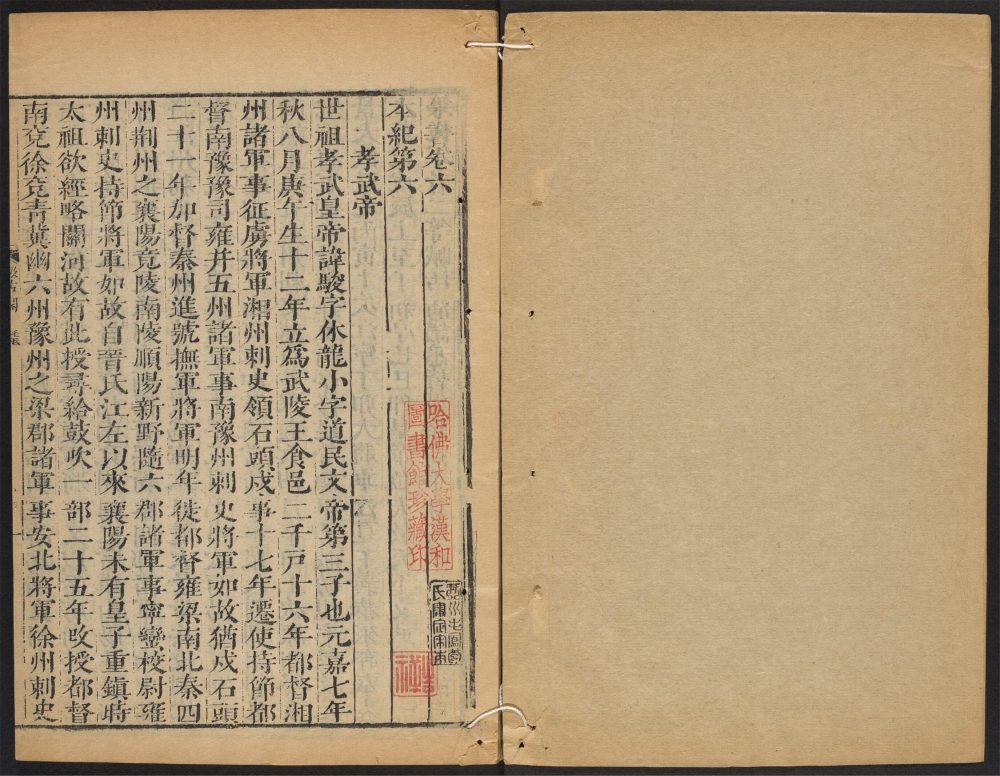 宋書卷六
本紀第六
孝武帝
世祖孝武皇帝諱駿字休龍小字道民文帝第三子也元嘉七年
秋八月庚午生十二年立爲武陵王食邑二千戸十六年都督湘
州諸軍事征虜將軍湘州刺史領石頭戍事十七年遷使持節都
督南豫豫司雍并五州諸軍事南豫州刺史將軍如故猶戍石頭
二十一年加督秦州進號撫軍將軍明年徙都督雍梁南北秦四
州荆州之襄陽竟陵南陵順陽新野隨六郡諸軍事寧蠻校尉雍
州刺史持節將軍如故自晉氏江左以來襄陽未有皇子重鎮時
太祖欲經略關河故有此授尋給鼓吹一部二十五年改授都督
南兗徐兗青冀幽六州豫州之梁郡諸軍事安北將軍徐州刺史
哈佛大學漢和
圖書館珍藏印